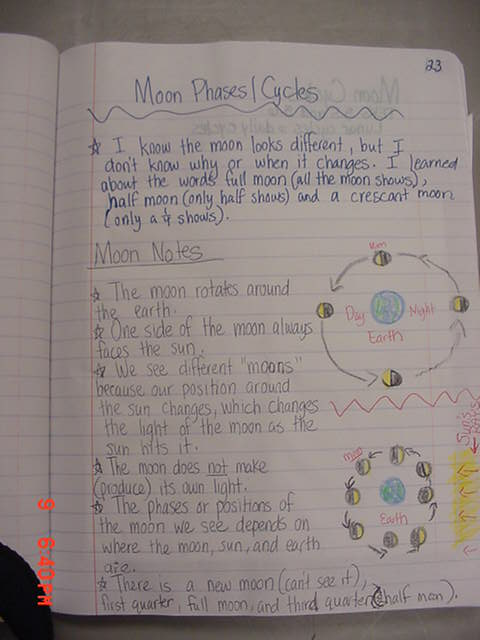 23
Moon Phases/Cycles
☆ I know the moon looks different, but I
don't know why or when it changes. I learned
about the words full moon (all the moon shows),
half moon (only half shows) and a crescant moon
(only a ¼ shows).
Moon Notes
☆ The moon rotates around
the earth.
☆ One side of the moon always
faces the sun.
☆ We see different "moons"
because our position around
the sun changes, which changes
the light of the moon as the
sun hits it.
☆ The moon does not make
(produce) its own light.
☆ The phases or positions of
the moon we see depends on
where the moon, sun, and earth
are.
☆ There is a new moon (can't see it),
first quarter, full moon, and third quarter (half moon).
Day
Night
Earth
Sun's
Rays
moon
Earth
9 6:40PM